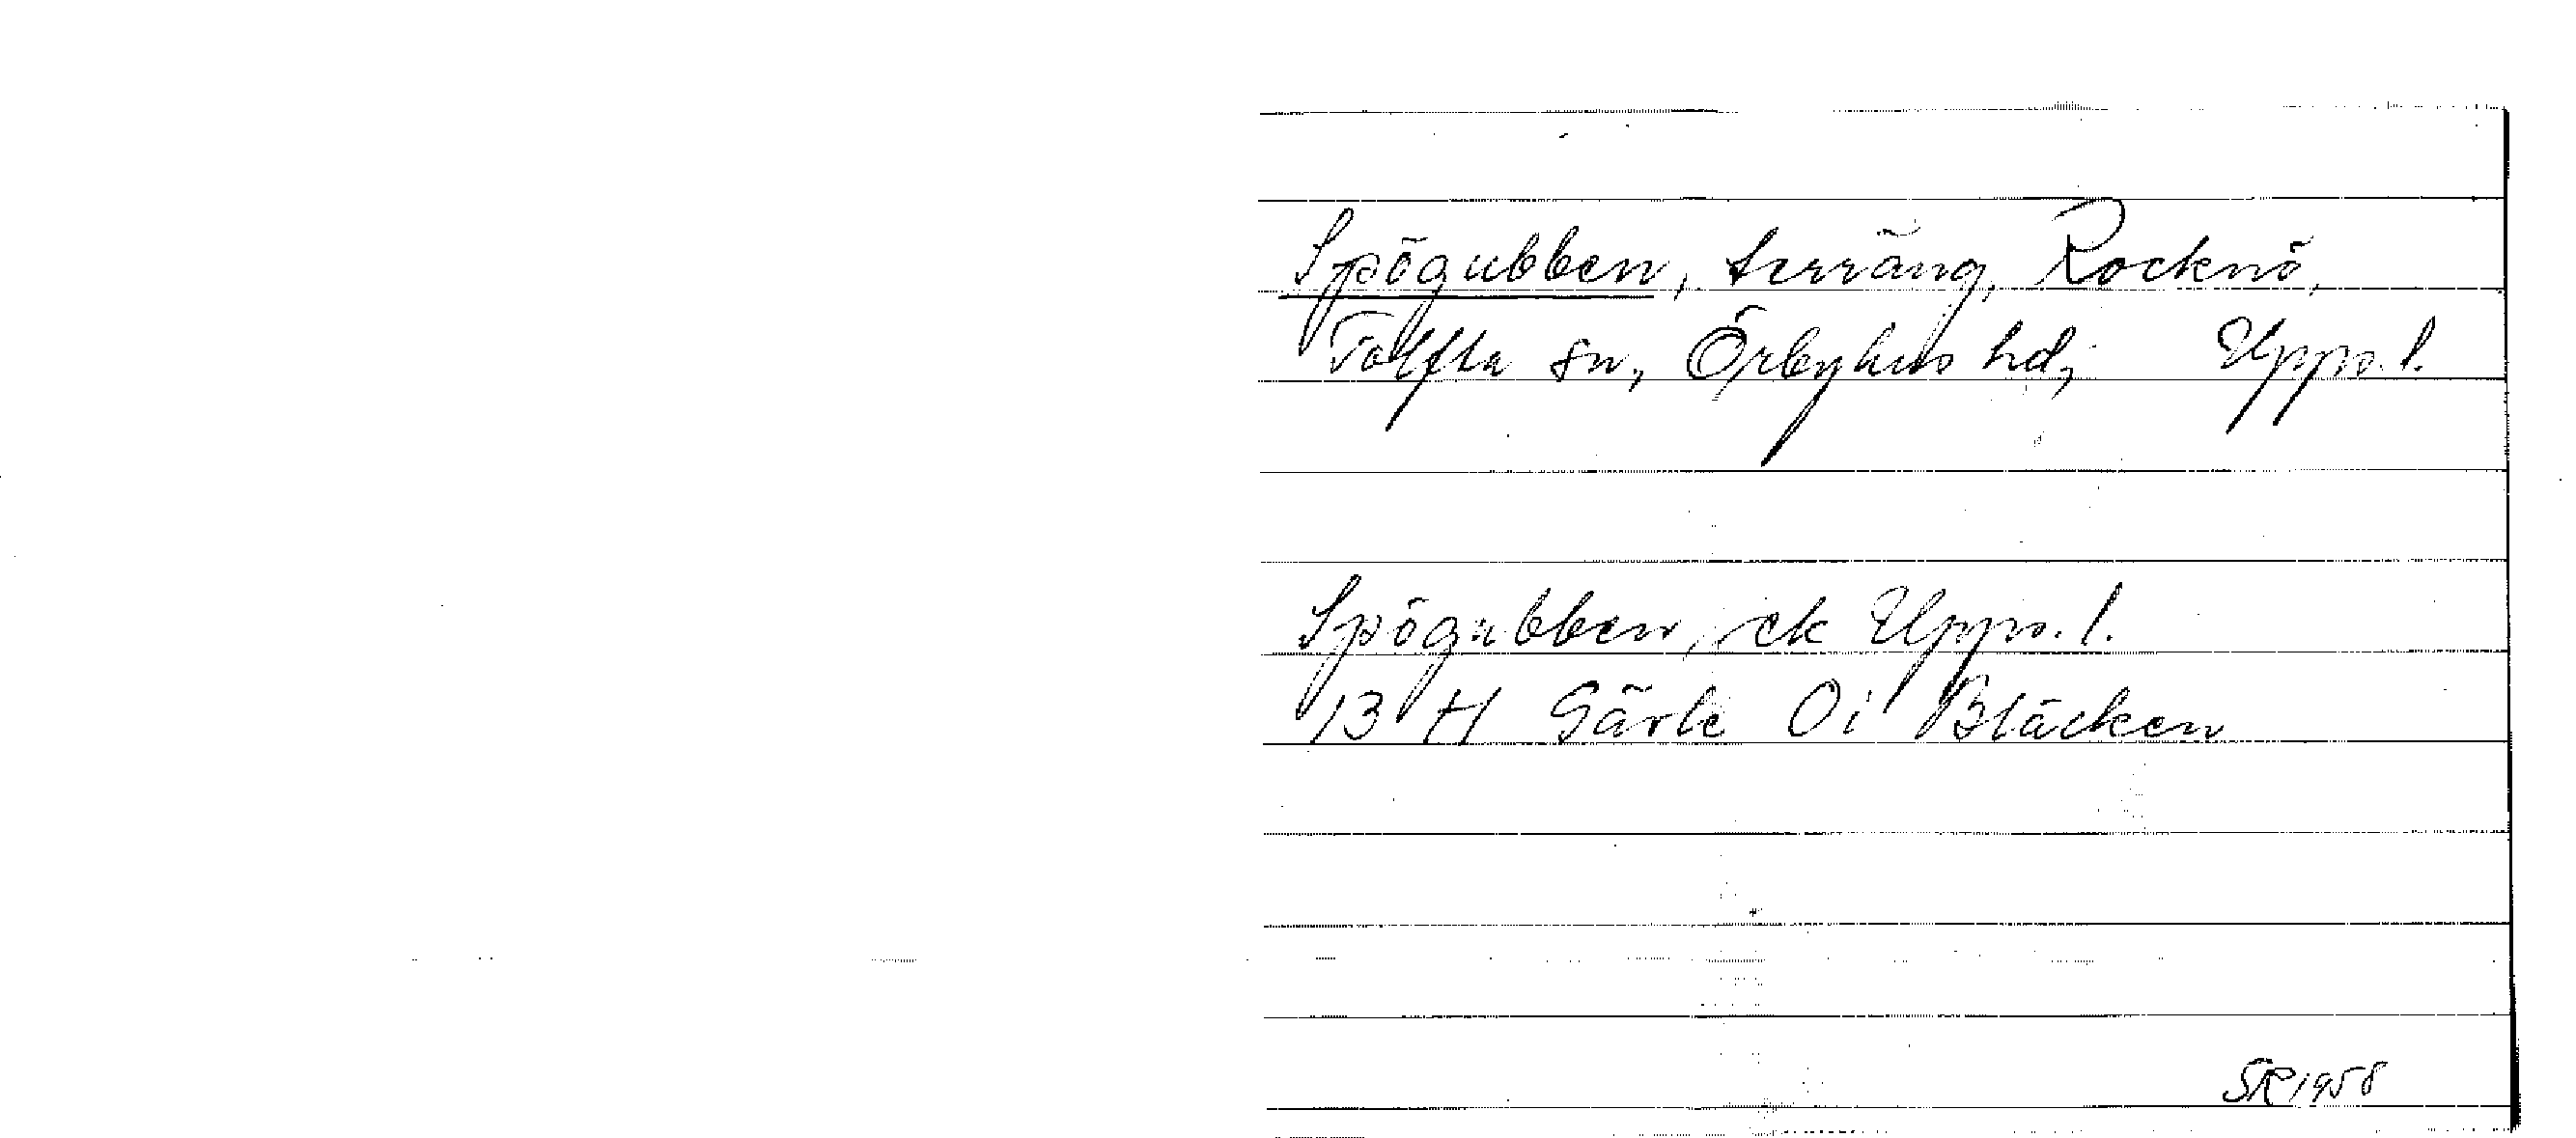 Spögubben, terräng, Rocknö,
Tolfta sn, Örbyhus hd, Upps. l.
Spögubben, ek Upps. l.
13 H Gävle 0i Bläcken
SR 1958